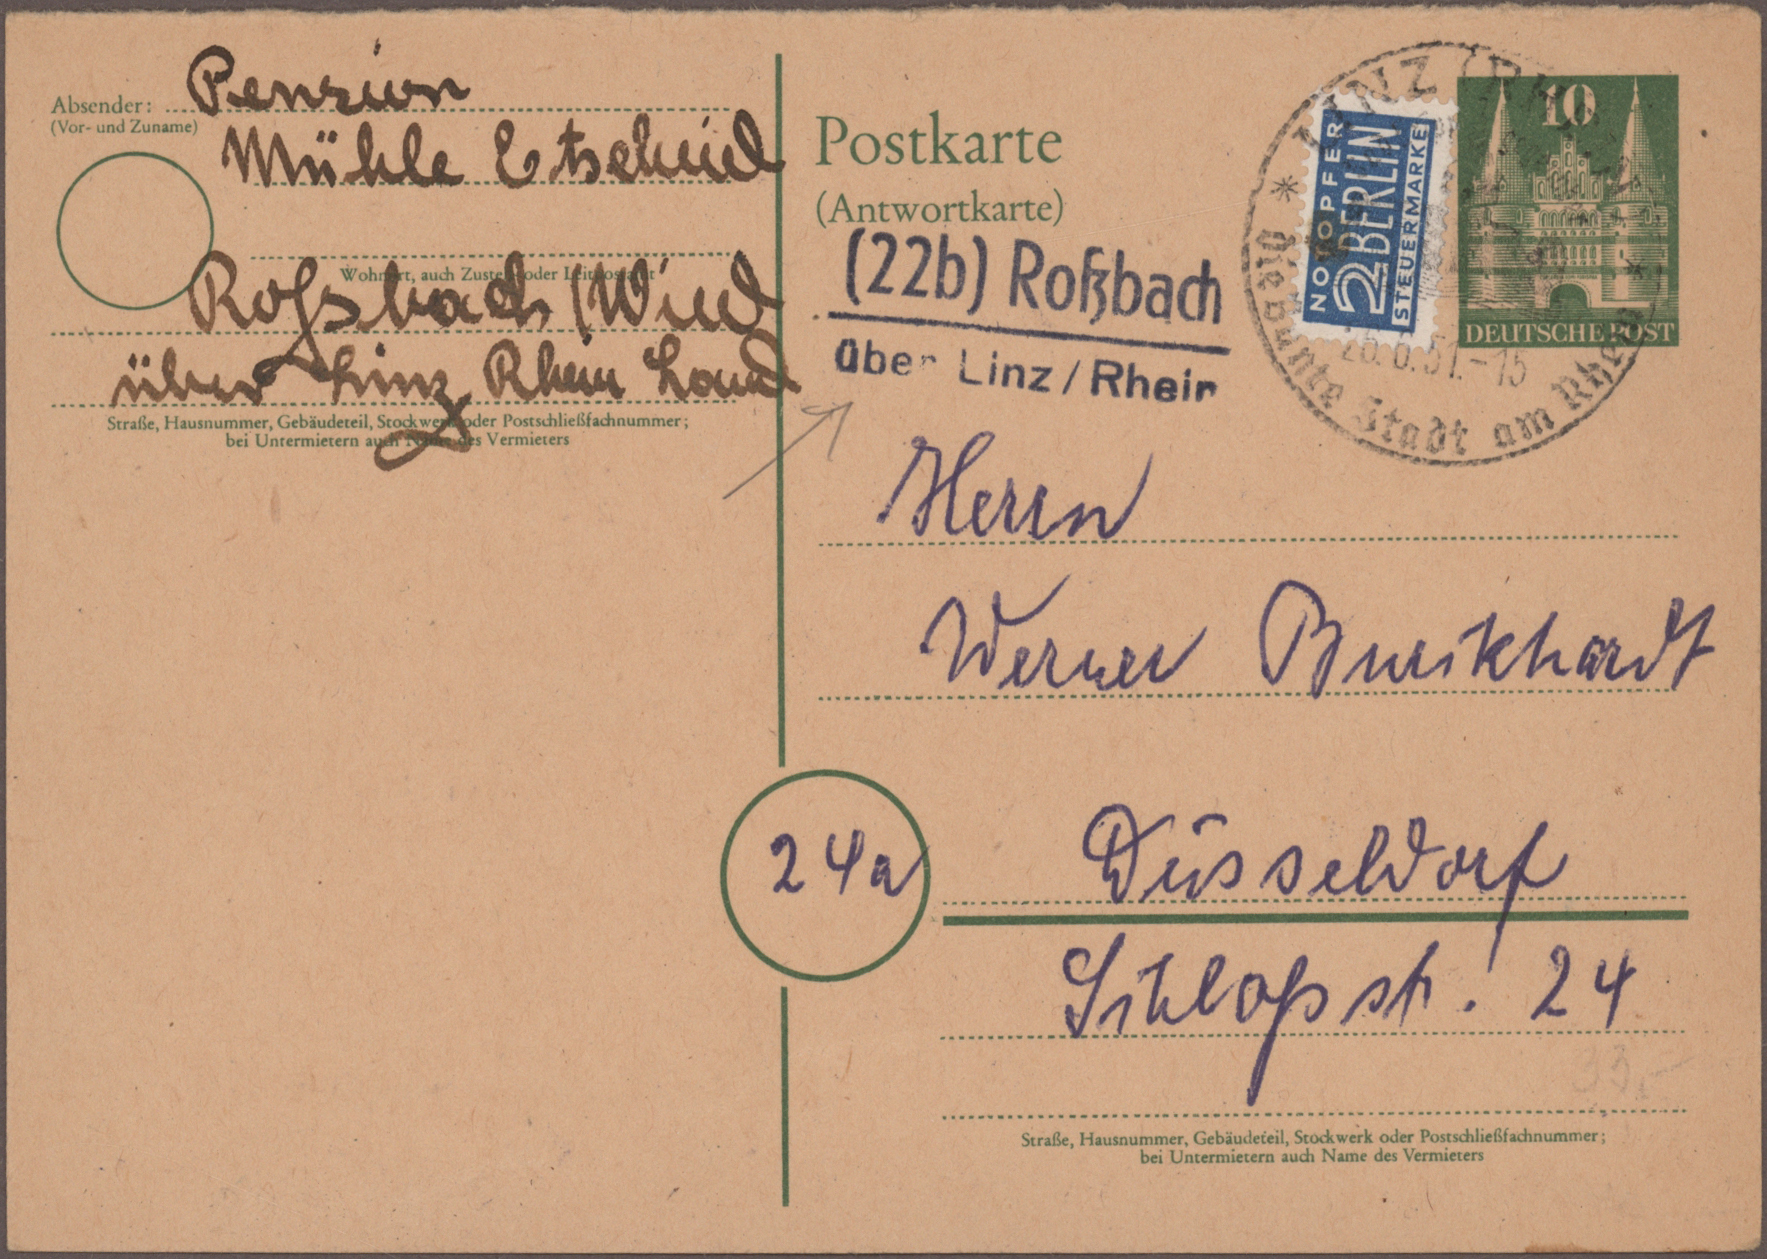 Absender: Pension
(Vor- und Zuname)
Mühle Etscheid
Wohnort, auch Zustell- oder Leitpostamt
Roßbach (Wied
über Linz Rhein Land
Straße, Hausnummer, Gebäudeteil, Stockwerk oder Postschließfachnummer;
bei Untermietern auch Name des Vermieters
Postkarte
(Antwortkarte)
(22b) Roßbach
über Linz / Rhein
NOTOPFER
2 BERLIN
STEUERMARKE
LINZ (RHEIN)
26.6.51.-15
Die bunte Stadt am Rhein
10
DEUTSCHE POST
Herrn
Werner Burkhardt
24a
Düsseldorf
Schloßstr. 24
33,-
Straße, Hausnummer, Gebäudeteil, Stockwerk oder Postschließfachnummer;
bei Untermietern auch Name des Vermieters